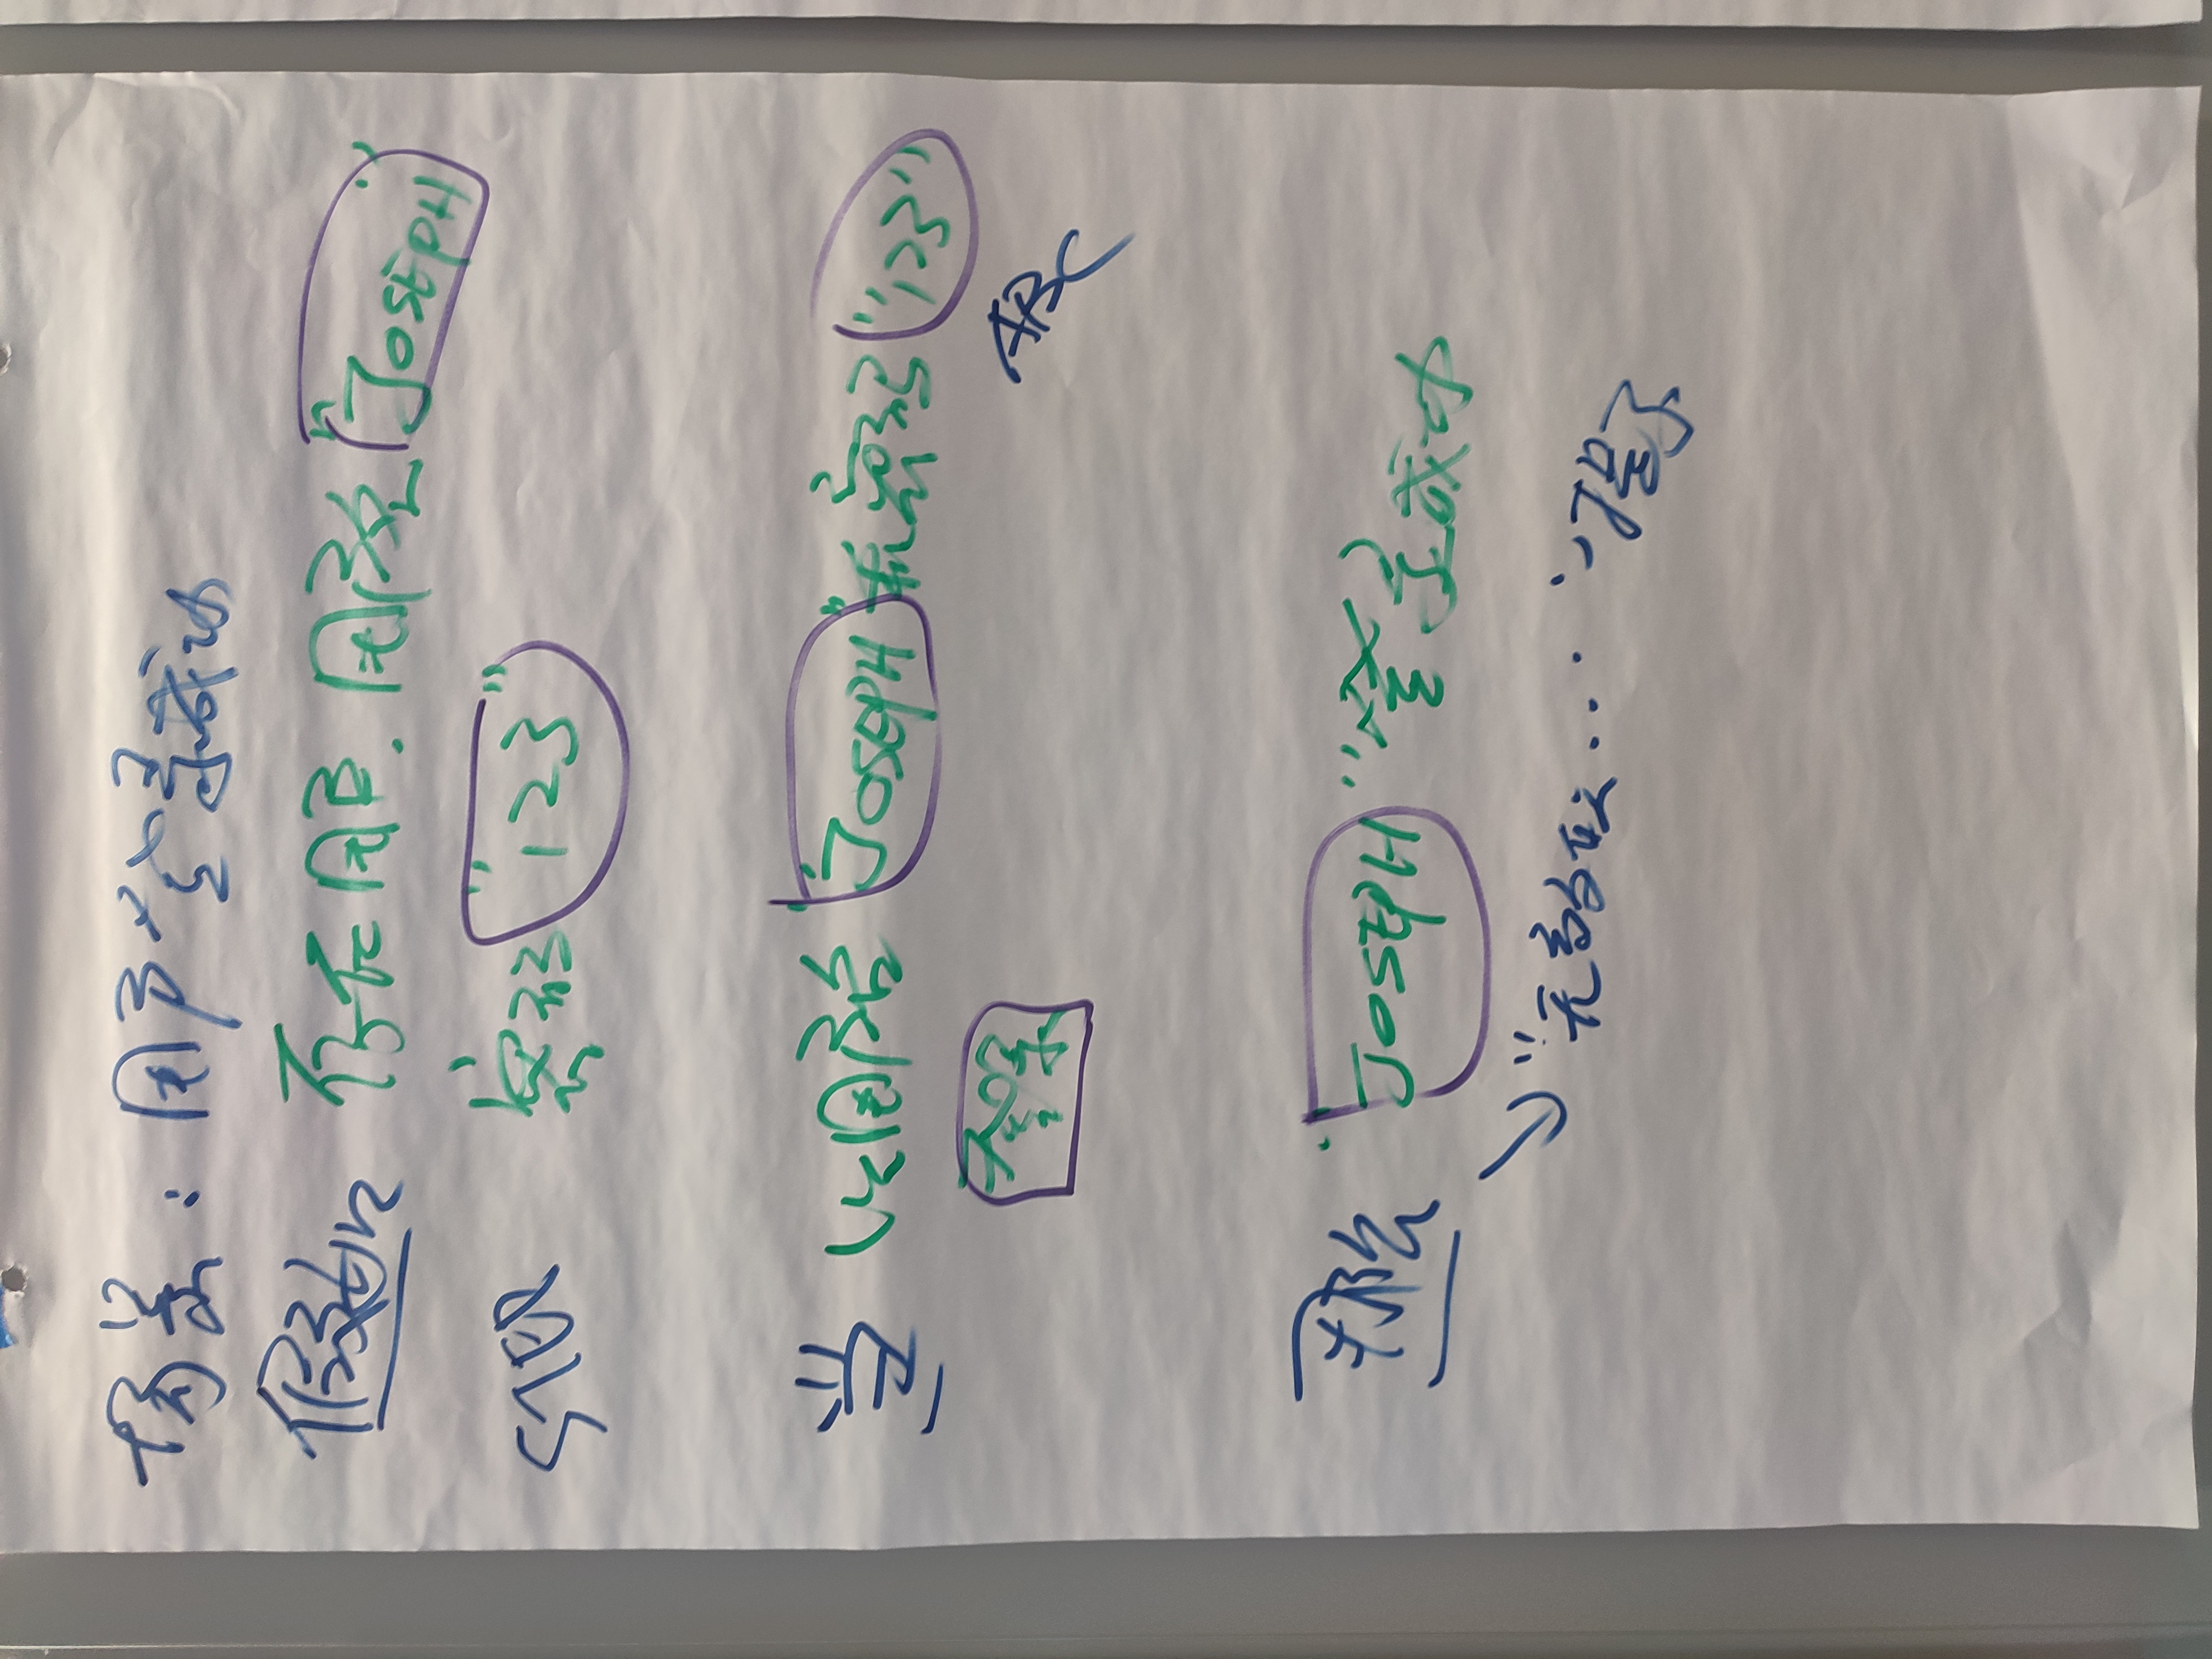 场景：用户登录成功
假如 存在用户. 用户名"JOSEPH"
STEP 密码"123"
当 以用户名"JOSEPH"和密码"123"
登录 ABC
那么 "JOSEPH"登录成功
"无效的...."提示